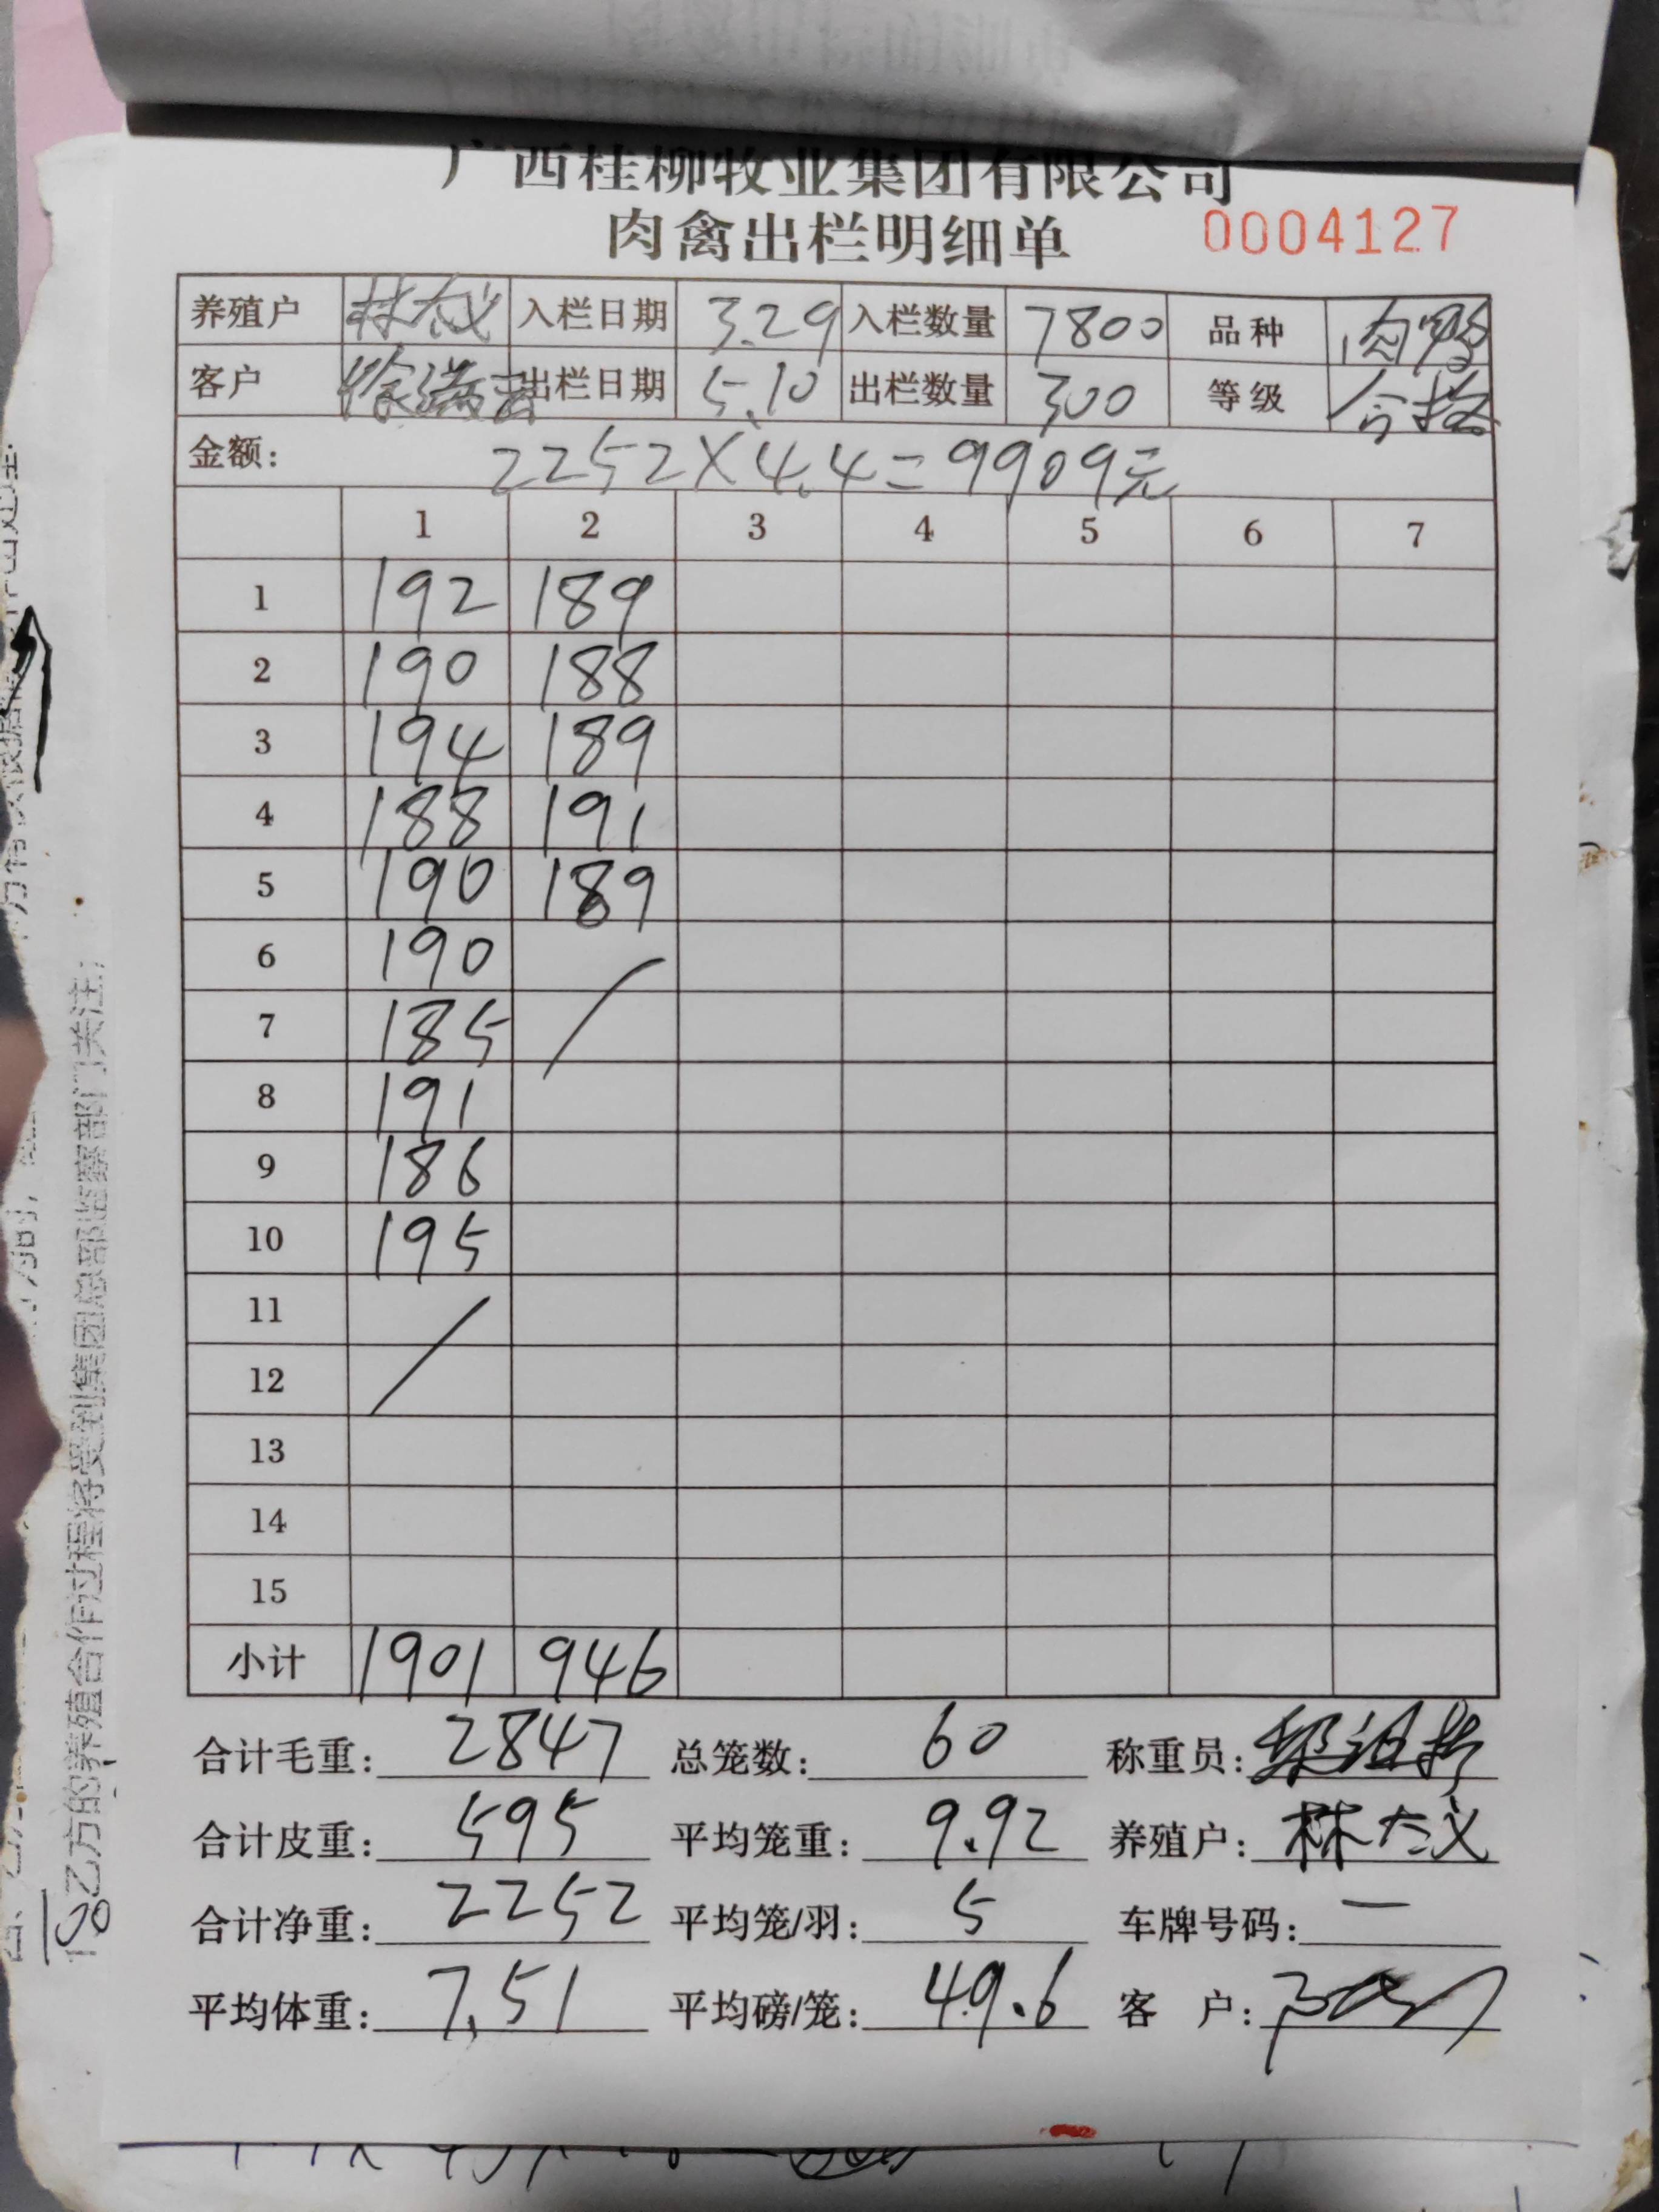 广西桂柳牧业集团有限公司
肉禽出栏明细单 0004127
养殖户 林大义 入栏日期 3.29 入栏数量 7800 品种 肉鸭
客户 出栏日期 5.10 出栏数量 300 等级 合格
金额: 2252×4.4=9909元
1 2 3 4 5 6 7
1 192 189
2 190 188
3 194 189
4 188 191
5 190 189
6 190
7 185
8 191
9 186
10 195
11
12
13
14
15
小计 1901 946
合计毛重: 2847 总笼数: 60 称重员:
合计皮重: 595 平均笼重: 9.92 养殖户: 林大义
合计净重: 2252 平均笼/羽: 5 车牌号码: 一
平均体重: 7.51 平均磅/笼: 49.6 客 户:
乙方的养殖合作过程将受到集团总部监察部门关注;